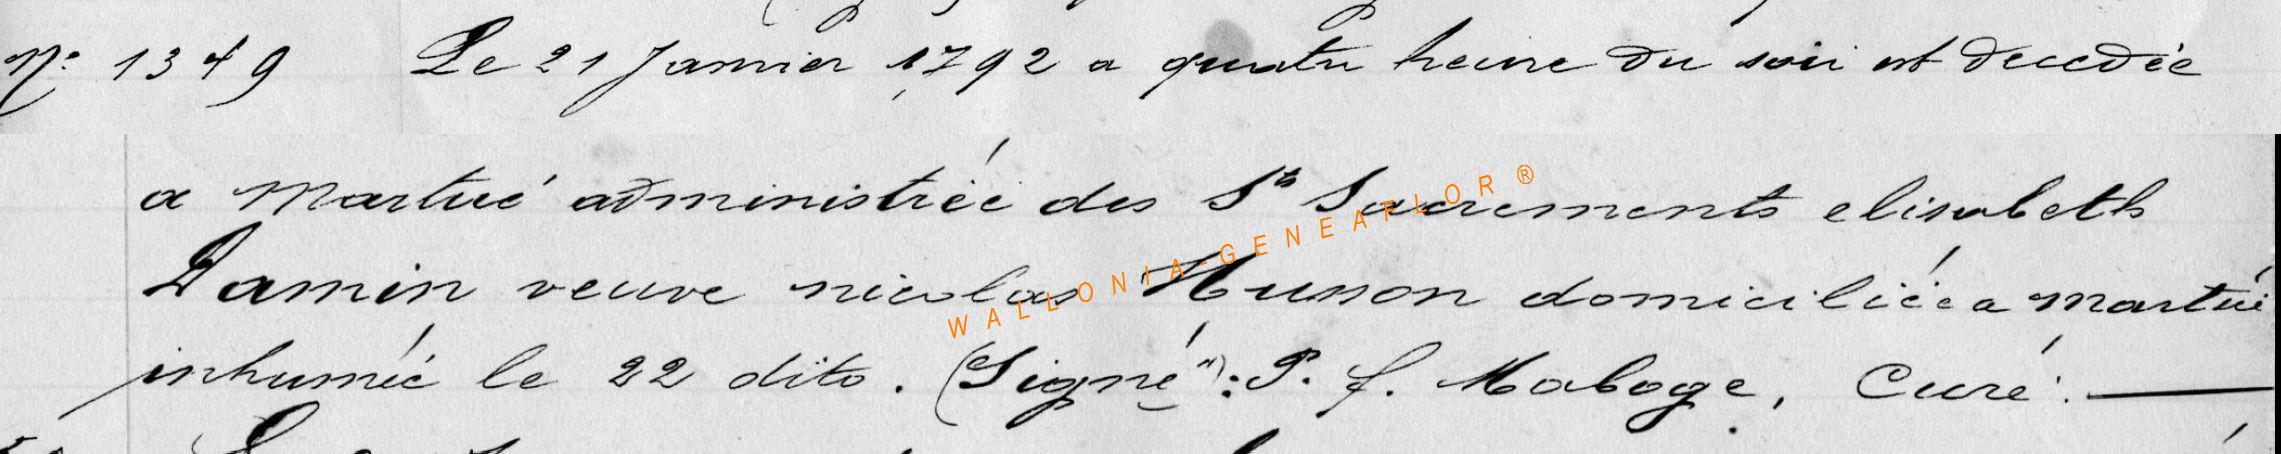 N° 1349 Le 21 Janvier 1792 a quatre heure du soir est decedée
a Martué administrée des Sts Sacrements elisabeth
Damin veuve nicolas Husson domiciliée a Martué
inhumée le 22 dito. (Signé"): P. f. Maboge, Curé: —
WALLONIA-GENEAFLOR ®